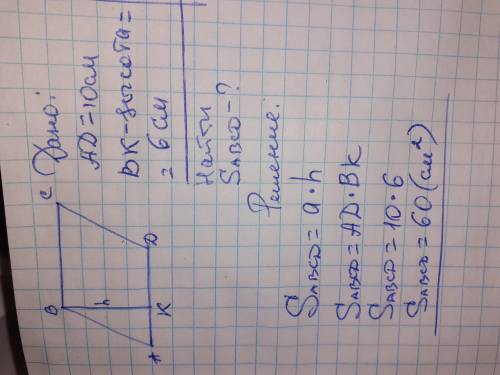 Дано:
AD = 10 см
BK - высота =
= 6 см
Найти
SABCD - ?
Решение:
SABCD = a · h
SABCD = AD · BK
SABCD = 10 · 6
SABCD = 60 (см²)
B
C
h
A
K
D